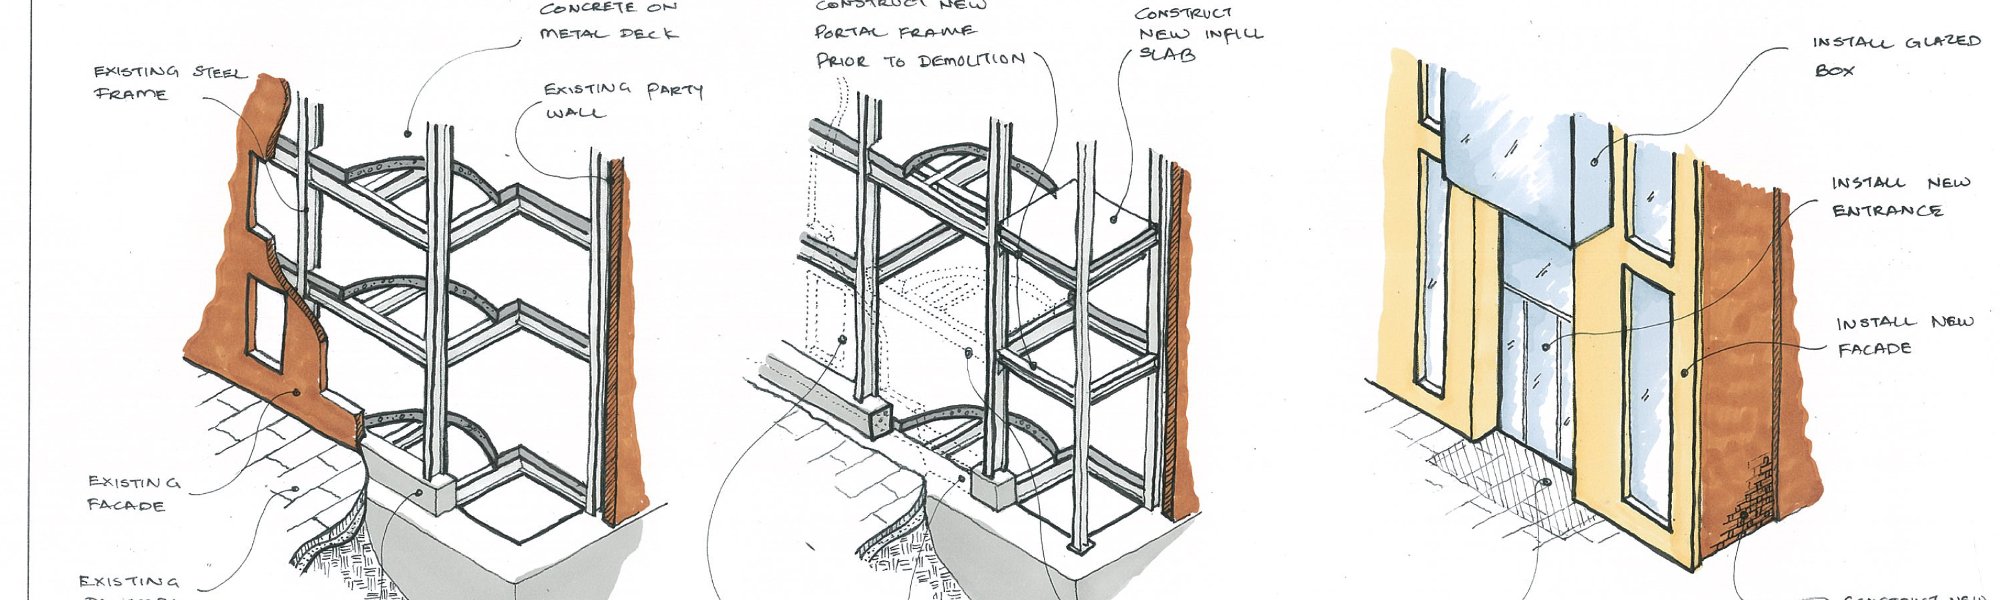 CONCRETE ON
METAL DECK
EXISTING STEEL
FRAME
EXISTING PARTY
WALL
EXISTING
FACADE
EXISTING
CONSTRUCT NEW
PORTAL FRAME
PRIOR TO DEMOLITION
CONSTRUCT
NEW INFILL
SLAB
INSTALL GLAZED
BOX
INSTALL NEW
ENTRANCE
INSTALL NEW
FACADE
CONSTRUCT NEW